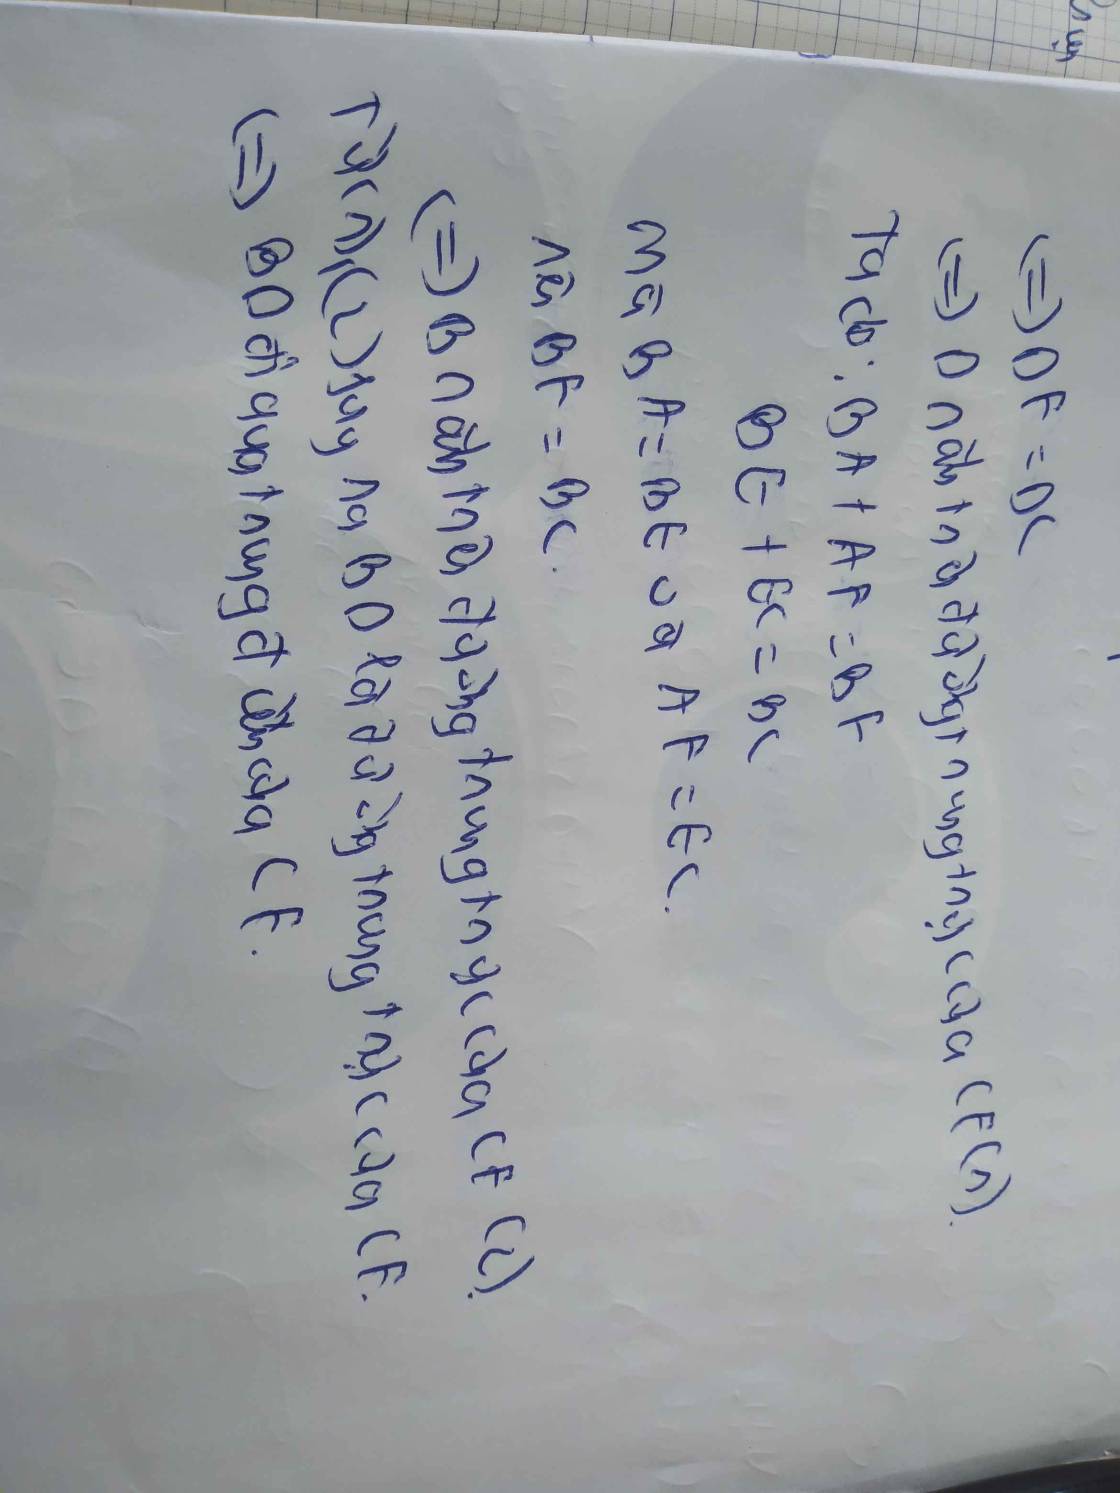 (=) DF = DC
(=) D nằm trên đường trung trực của CF (1).
Ta có: BA + AF = BF
BE + EC = BC
Mà BA = BE và AF = EC.
nên BF = BC.
(=) B nằm trên đường trung trực của CF (2).
Từ (1), (2) suy ra BD là đường trung trực của CF.
(=) BD đi qua trung điểm của CF.